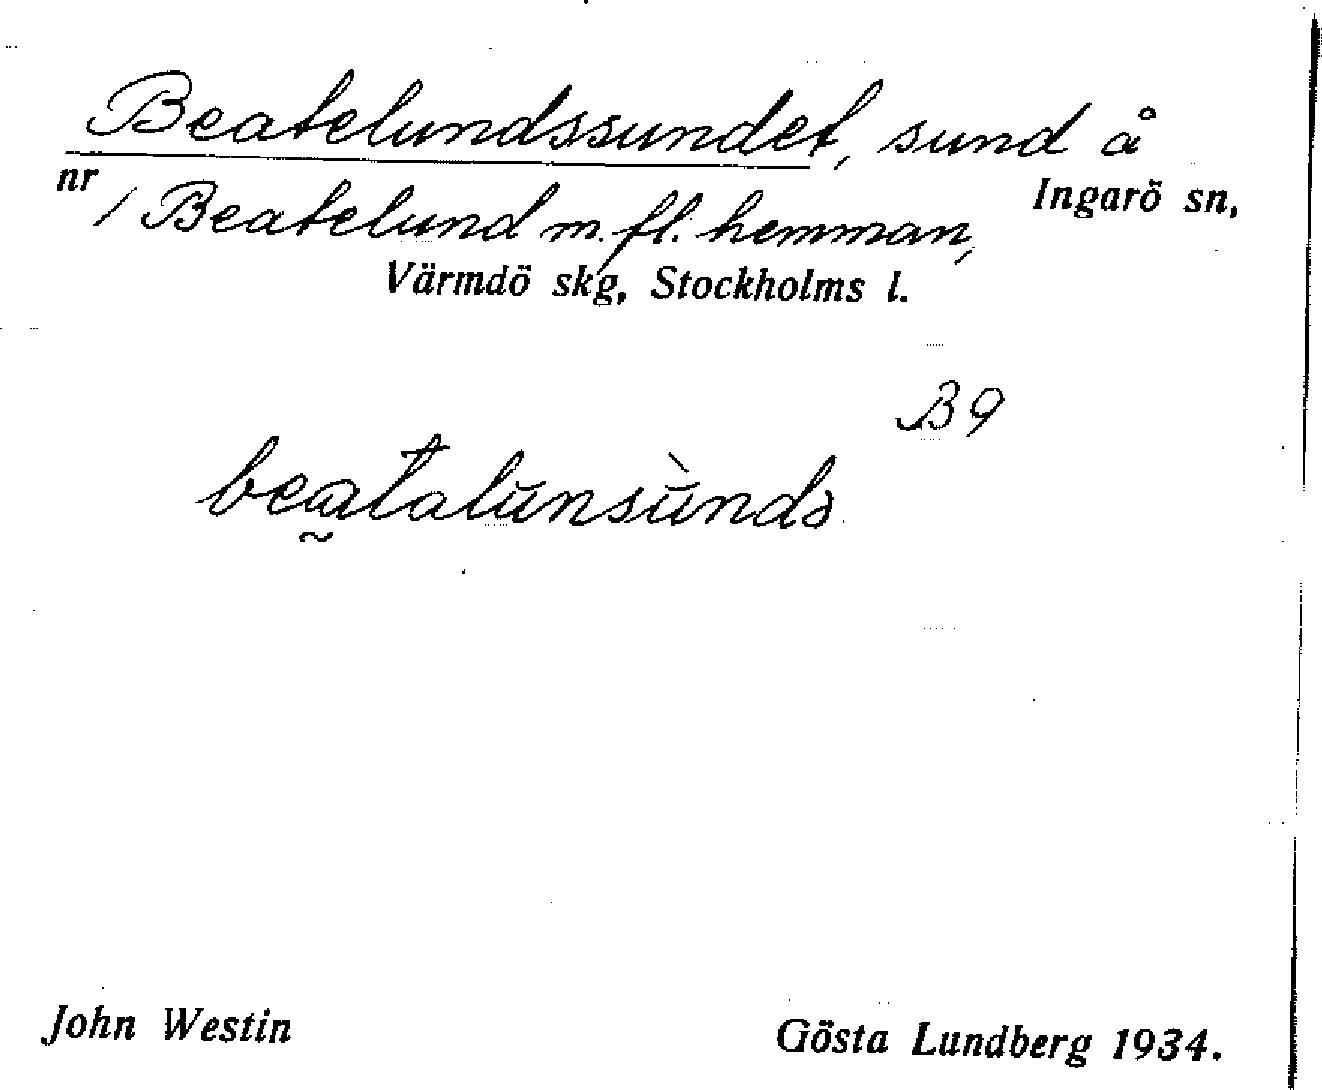 Beatelundssundet, sund å
nr / Beatelund m. fl. hemman, Ingarö sn,
Värmdö skg, Stockholms l.
B9
beatalunsùndə
John Westin
Gösta Lundberg 1934.